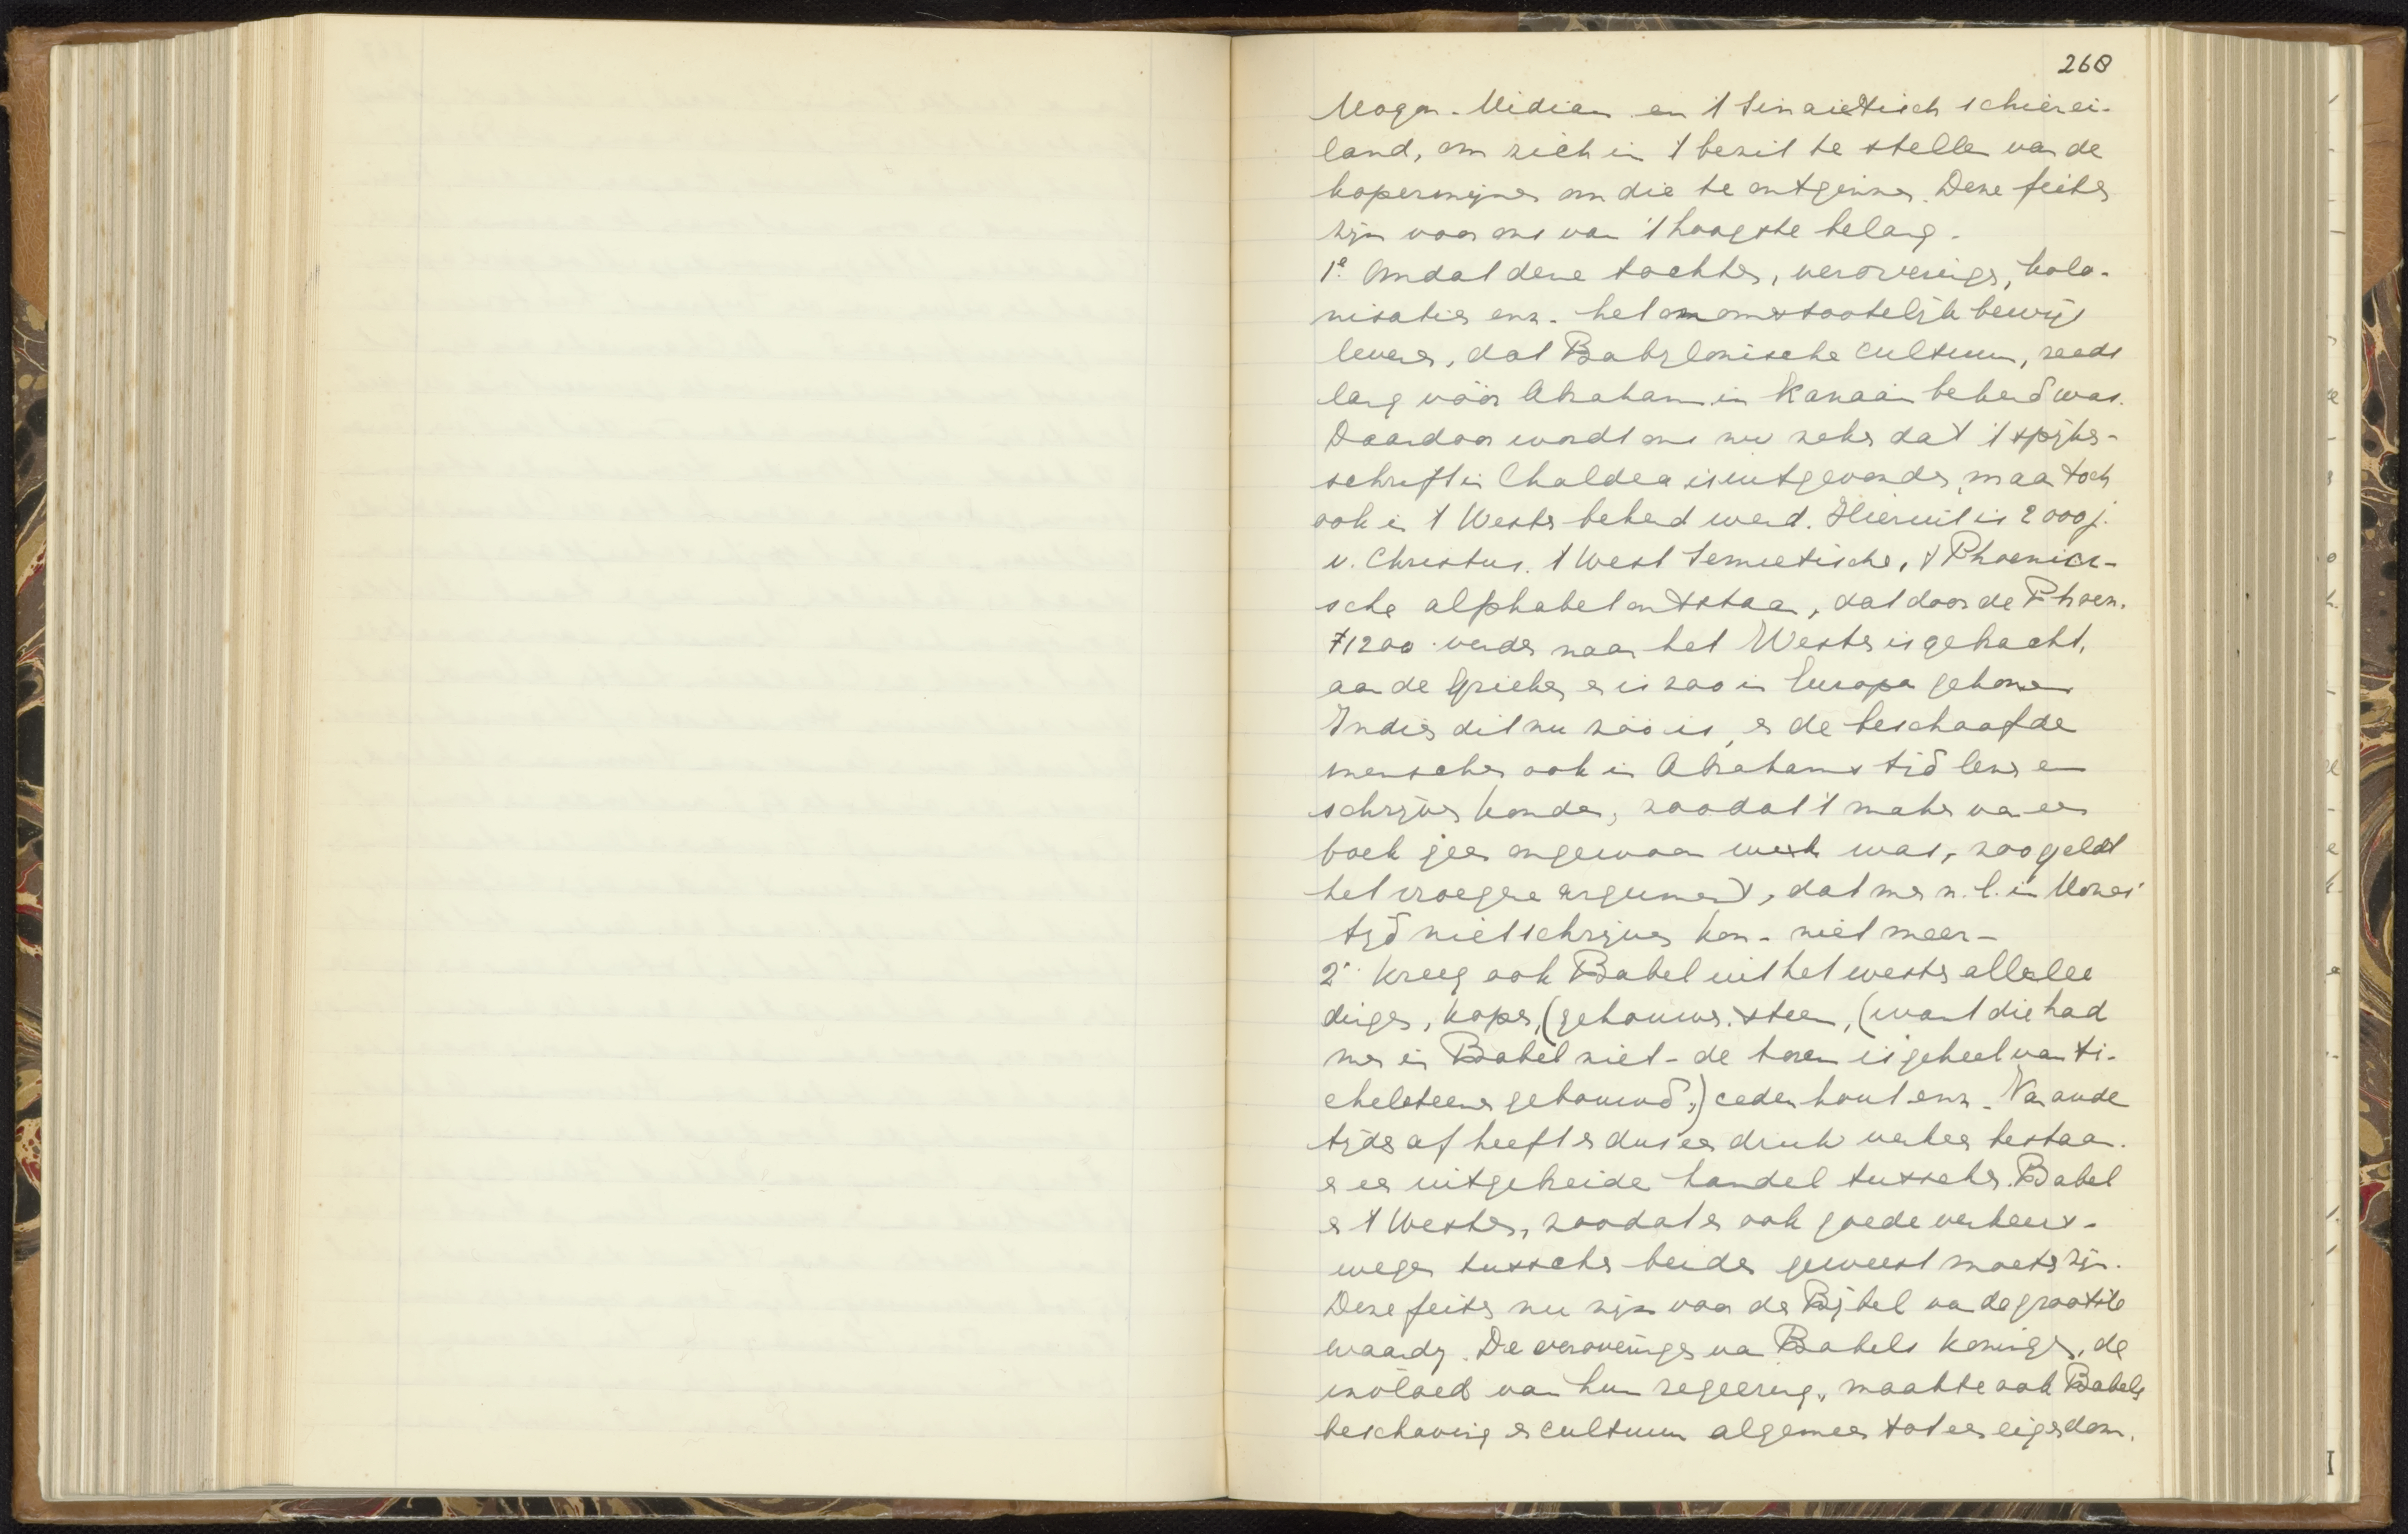 268
Magan-Midian en 't Sinaietisch schierei-
land, om zich in 't bezit te stellen van de
kopermijnen om die te ontginnen. Deze feiten
zijn voor ons van 't hoogste belang.
1e. Omdat deze tochten, veroveringen, kolo-
nisaties enz. het onomstootelijk bewijs
leveren, dat Babylonische cultuur, reeds
lang vóór Abraham in Kanaän bekend was.
Daardoor wordt ons nu zeker dat 't spijker-
schrift in Chaldea is uitgevonden, maar toch
ook in 't Westen bekend werd. Hieruit is 2000 j.
v. Christus. 't West Semietische, 't Phoenici-
sche alphabet ontstaan, dat door de Phoen.
±1200 verder naar het Westen is gebracht,
aan de Grieken en is zoo in Europa gekomen
Indien dit nu zóó is, en de beschaafde
menschen ook in Abrahams tijd lezen en
schrijven konden, zoodat 't maken van een
boek geen ongewoon werk was, zoo geldt
het vroegere argument, dat men n.l. in Mozes'
tijd niet schrijven kon - niet meer -
2e. kreeg ook Babel uit het westen allerlei
dingen, koper, (gehouwen. steen, (want die had
men in Babel niet - de toren is geheel van ti-
chelsteenen gebouwd;) cederhout enz. Van oude
tijden af heeft er dus een druk verkeer bestaan.
en een uitgebreide handel tusschen Babel
en 't Westen, zoodat er ook goede verkeers-
wegen tusschen beiden geweest moeten zijn.
Deze feiten nu zijn voor de Bijbel van de grootste
waarde. De veroveringen van Babels koningen, de
invloed van hun regeering, maakte ook Babels
beschaving en cultuur algemeen tot een eigendom.